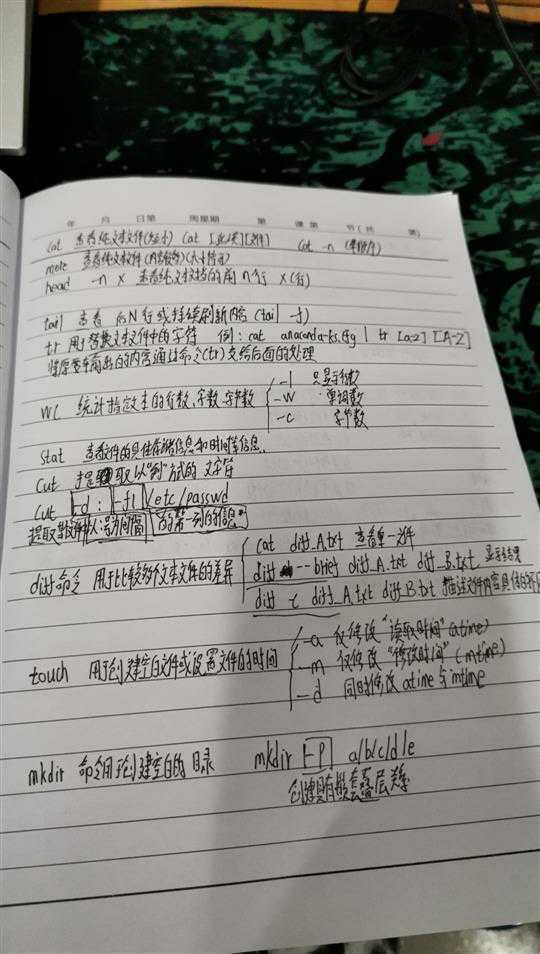 年 月 日第 周星期 第 课第 节(共 节)
cat 查看纯文本文件(短小) cat [选项][文件] cat -n
more 查看纯文本文件
head -n X 查看纯文本文档的前n行 X(行)
tail 查看 后N行或持续刷新内容 (tail -f)
tr 用于替换文本文件中的字符 例: cat anaconda-ks.cfg | tr [a-z] [A-Z]
将原要输出的内容通过命令(tr)交给后面的处理
wc 统计指定文本的行数、字数、字节数
-l 只显示行数
-w 单词数
-c 字节数
stat 查看文件的具体存储信息和时间等信息.
cut 提取以"列"方式的文字符
cut -d : -f1 /etc/passwd
提取 文件以:号为间隔的第一列的信息
diff命令 用于比较多个文本文件的差异
cat diff_A.txt 查看单一文件
diff --brief diff_A.txt diff_B.txt 显示结果
diff -c diff_A.txt diff_B.txt 描述文件内容具体的不同
touch 用于创建空白文件或设置文件的时间
-a 仅修改"读取时间"(atime)
-m 仅修改"修改时间"(mtime)
-d 同时修改 atime与mtime
mkdir 命令用于创建空白的目录 mkdir -p a/b/c/d/e
创建具有嵌套 层叠